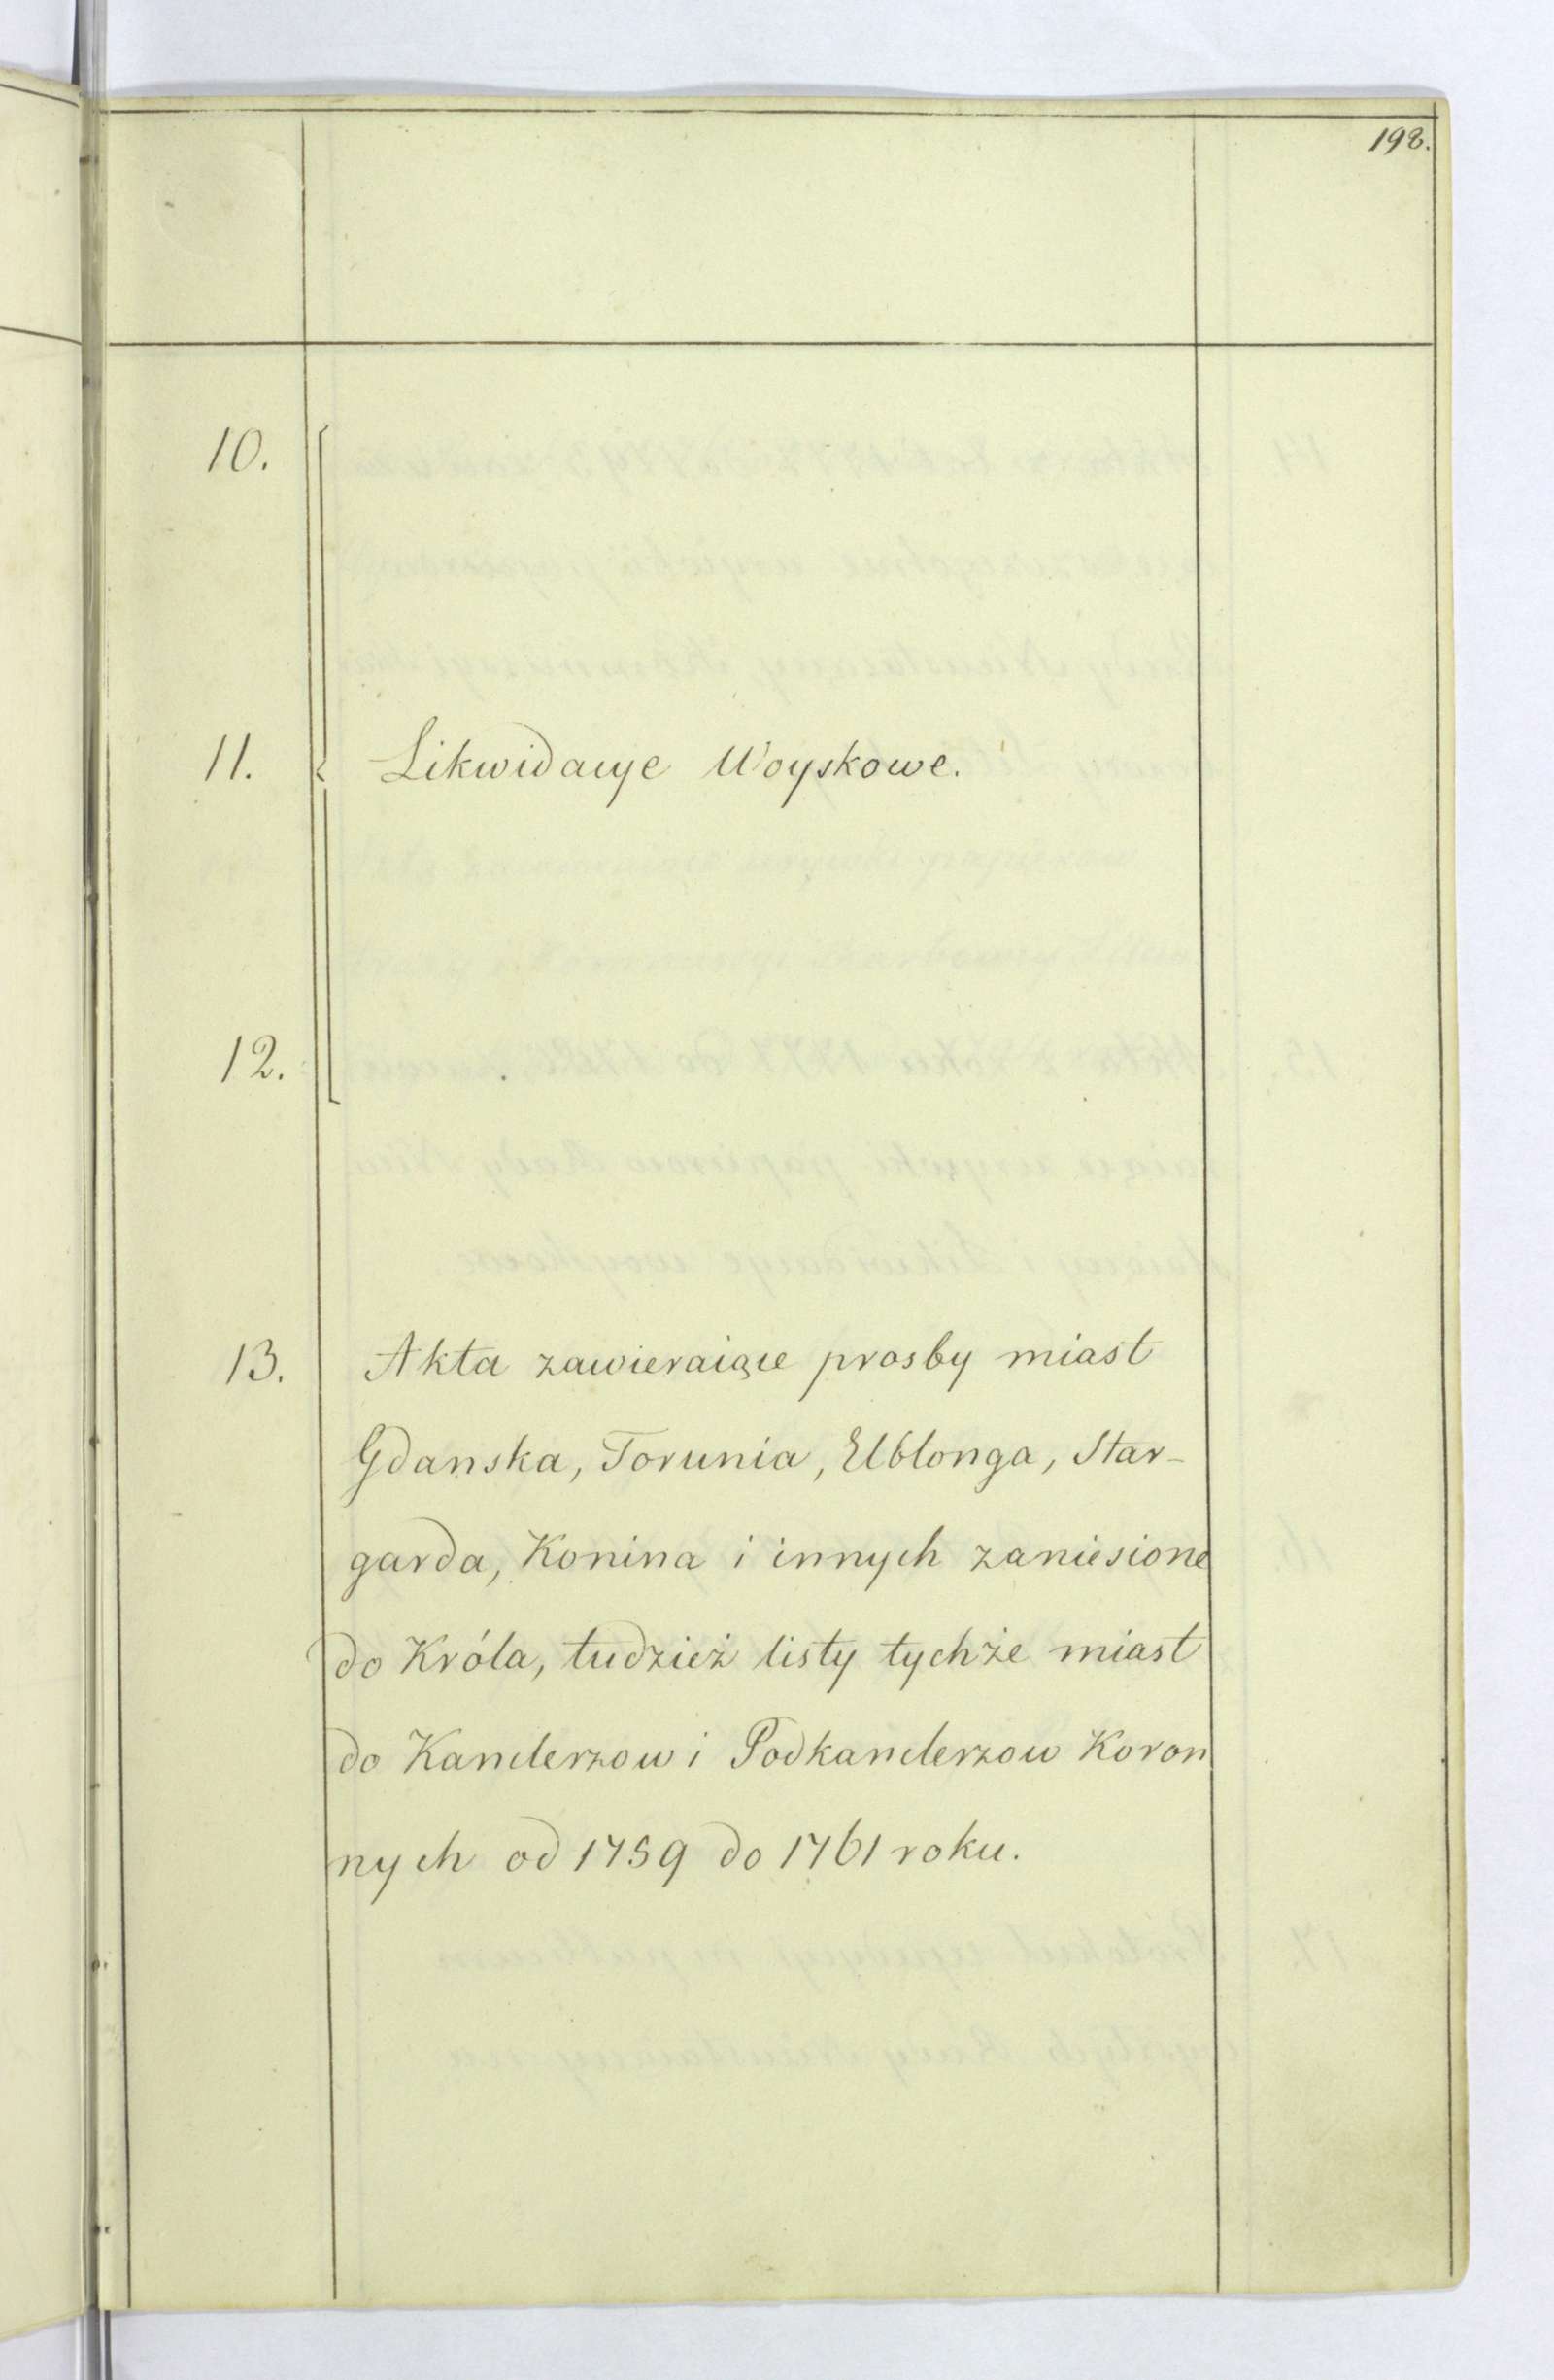 198.
10.
11. Likwidacye Woyskowe.
12.
13. Akta zawieraiące prosby miast
Gdanska, Torunia, Elblonga, Star-
garda, Konina i innych zaniesione
do Króla, tudzież listy tychże miast
do Kanclerzow i Podkanclerzow Koron
nych od 1759 do 1761 roku.